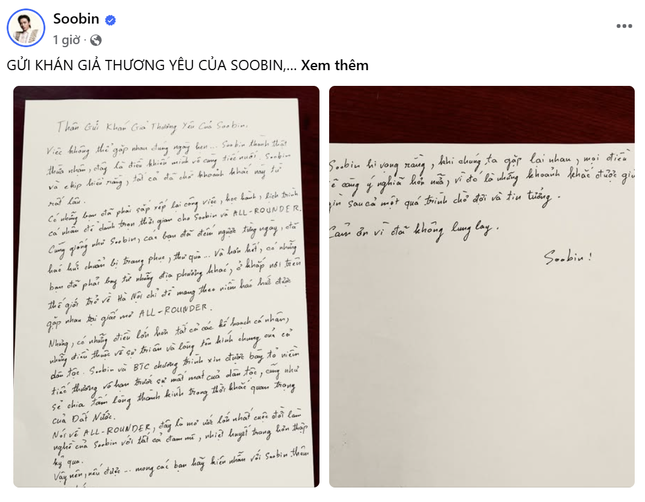 Soobin
1 giờ ·
GỬI KHÁN GIẢ THƯƠNG YÊU CỦA SOOBIN,... Xem thêm
Thân Gửi Khán Giả Thương Yêu Của Soobin.
Việc không thể gặp nhau đúng ngày hẹn... Soobin thành thật
thừa nhận, đây là điều khiến mình vô cùng tiếc nuối. Soobin
và ekip hiểu rằng, tất cả đã chờ khoảnh khắc này từ
rất lâu.
Có những bạn đã phải sắp xếp lại công việc, học hành, lịch trình
cá nhân để dành trọn thời gian cho Soobin và ALL-ROUNDER.
Cũng giống như Soobin, các bạn đã đếm ngược từng ngày, đã
háo hức chuẩn bị trang phục, thứ quà... Và hơn hết, có những
bạn đã phải bay từ những địa phương khác, ở khắp nơi trên
thế giới trở về Hà Nội chỉ để mang theo niềm háo hức được
gặp nhau tại giấc mơ ALL-ROUNDER.
Nhưng, có những điều lớn hơn tất cả các kế hoạch cá nhân,
những điều thuộc về sự tri ân và lòng tôn kính chung của cả
dân tộc. Soobin và BTC chương trình xin được bày tỏ niềm
tiếc thương vô hạn trước sự mất mát của dân tộc, cũng như
sẻ chia tấm lòng thành kính trong thời khắc quan trọng
của Đất Nước.
Nói về ALL-ROUNDER, đây là mơ ước lớn nhất cuộc đời làm
nghề của Soobin với tất cả đam mê, nhiệt huyết trong hơn thập
kỷ qua.
Vậy nên, nếu được... mong các bạn hãy kiên nhẫn với Soobin thêm
Soobin hi vọng rằng, khi chúng ta gặp lại nhau, mọi điều
sẽ càng ý nghĩa hơn nữa, vì đó là những khoảnh khắc được giữ
gìn sau cả một quá trình chờ đợi và tin tưởng.
Cảm ơn vì đã không lung lay.
Soobin!